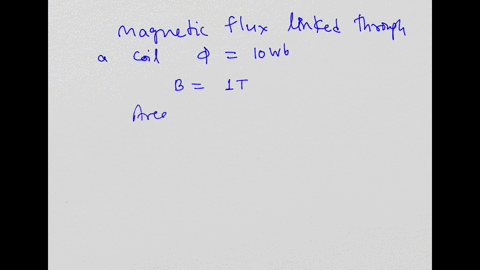 magnetic flux linked through
a coil ϕ = 10 wb
B = 1 T
Aree